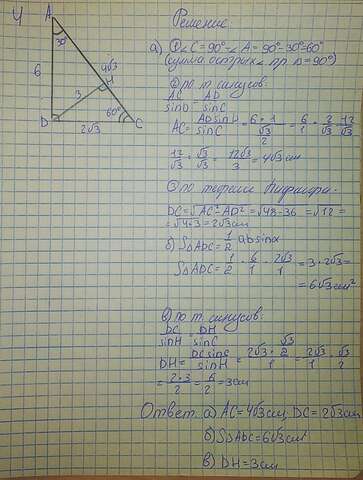 4
A
30°
6
4√3
H
3
60°
D
2√3
C
Решение:
а) ① ∠C = 90° - ∠A = 90° - 30° = 60°
(сумма острых ∠ пр. △ = 90°)
② по т. синусов:
AC/sinD = AD/sinC
AC = AD sinD/sinC = 6·1/(√3/2) = 6/1 · 2/√3 = 12/√3
12/√3 · √3/√3 = 12√3/3 = 4√3 см
③ по теореме Пифагора:
DC = √AC² - AD² = √48 - 36 = √12 =
= √4·3 = 2√3 см
б) S△ADC = 1/2 ab sin α
S△ADC = 1/2 · 6/1 · 2√3/1 = 3 · 2√3 =
= 6√3 см²
в) по т. синусов:
DC/sinH = DH/sinC
DH = DC sinC/sinH = 2√3 · √3/2 / 1 = 2√3/1 · √3/2
= 2·3/2 = 6/2 = 3 см
Ответ: а) AC = 4√3 см, DC = 2√3 см
б) S△ADC = 6√3 см²
в) DH = 3 см